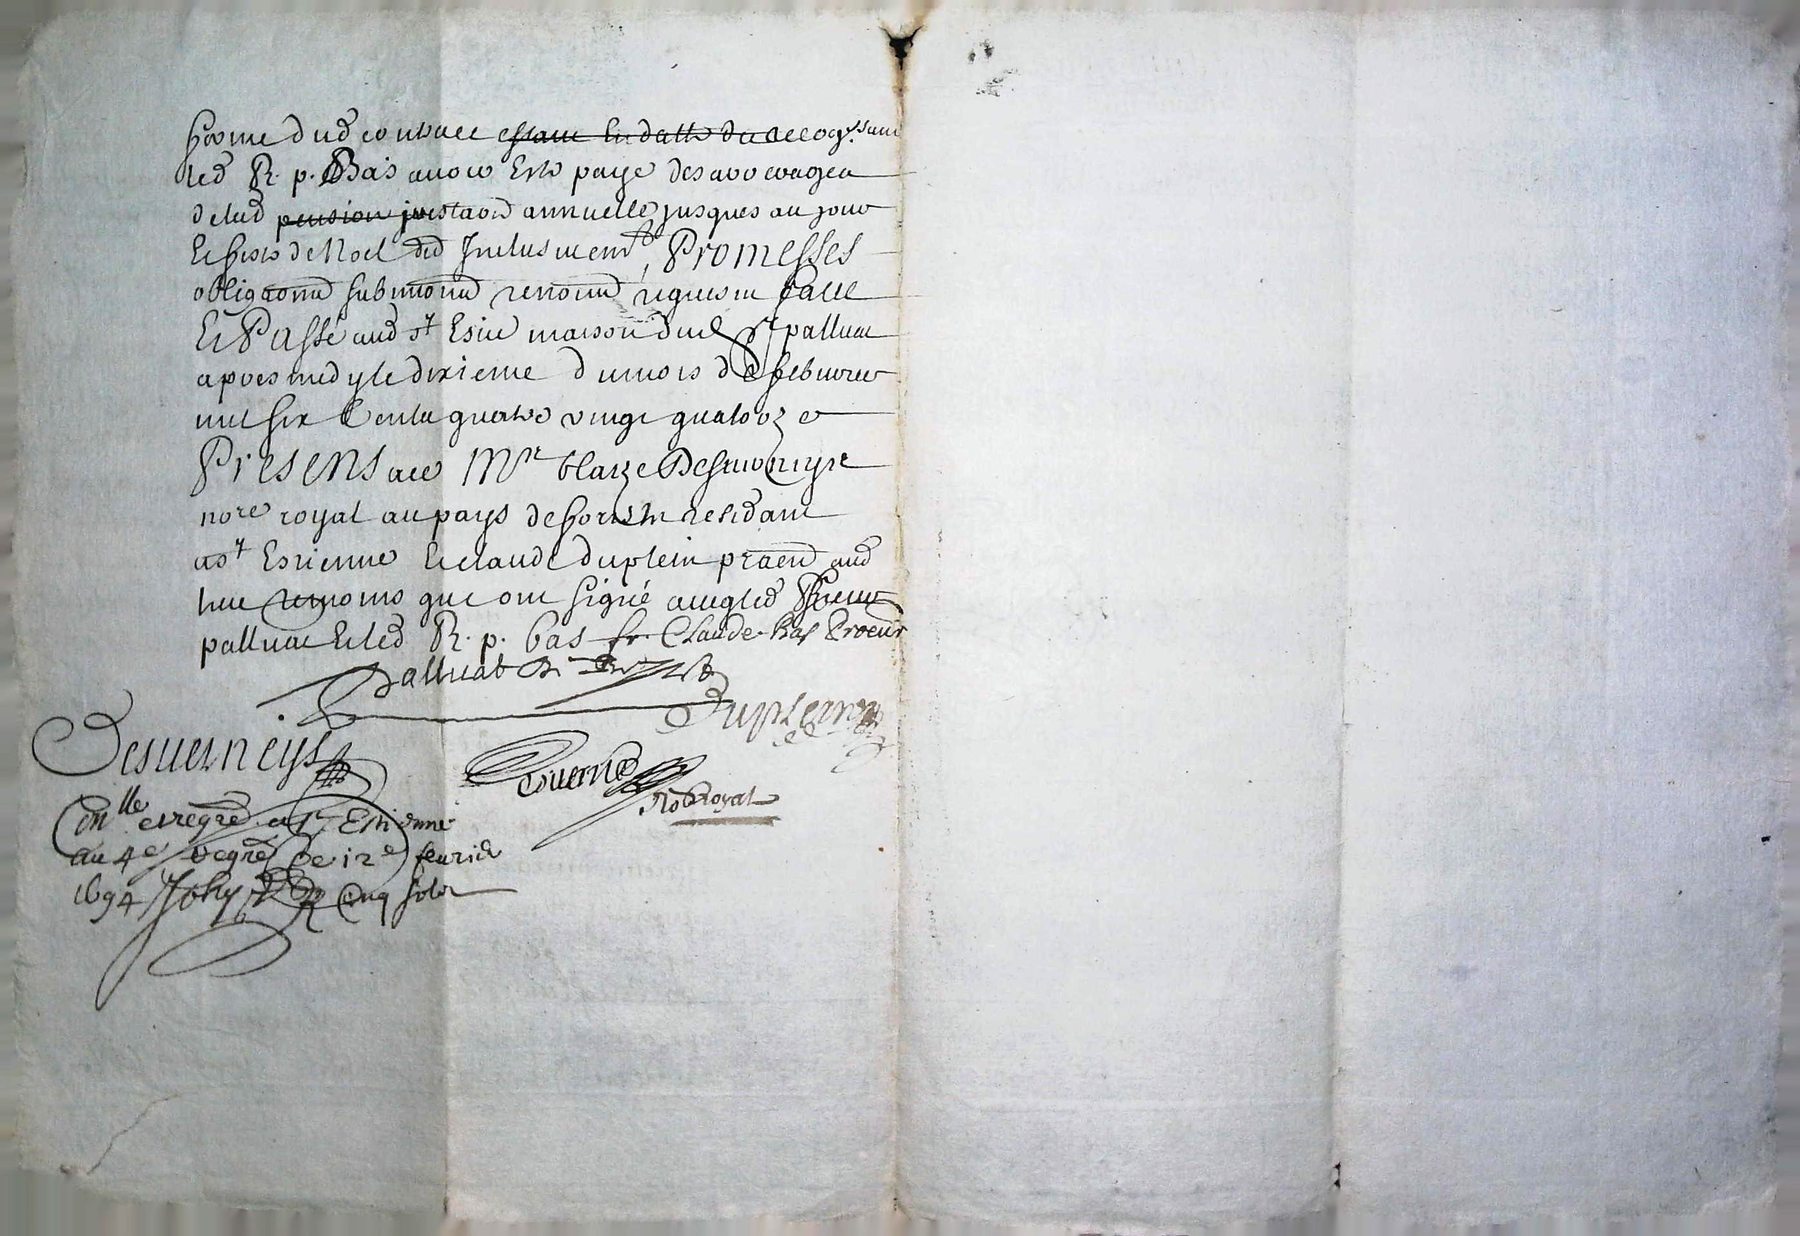 forme dud contract estant en datte du recog.ssant
led R. p. Bas avoir Este payé des arrerages
de lad pension prestaon annuelle jusques au jour
et feste de Noel dr͞ Inclusivemt, Promesses
obligaons submions renons req̃ues en faict
Et Passé aud st Esne maison dud sr palluat
apres midy le dixieme du mois de febvrier
mil six Cents quatre vingt quatorze
Presens a ce Mre blaize Desverneys
nore royal au pays de forests residant
a st Estienne Et claude duplein praen͞ aud
lieu tesmoins qui ont signé avec led sieur
palluat Et led R. p. bas fr. Claude Bas Procur
Palluat
Duplein
Desverneys
No Royal
Conlle et regre a st Estienne
au 4e regre ce 12e feurier
1694 Cinq sols